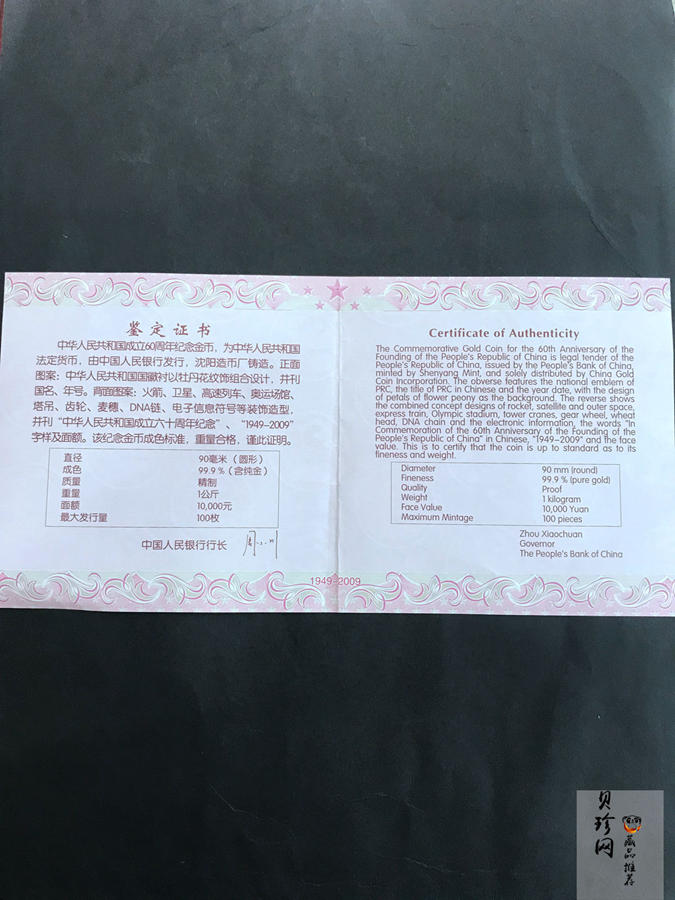 鉴定证书
中华人民共和国成立60周年纪念金币，为中华人民共和国
法定货币，由中国人民银行发行，沈阳造币厂铸造。正面
图案：中华人民共和国国徽衬以牡丹花纹饰组合设计，并刊
国名、年号。背面图案：火箭、卫星、高速列车、奥运场馆、
塔吊、齿轮、麦穗、DNA链、电子信息符号等装饰造型，
并刊“中华人民共和国成立六十周年纪念”、“1949-2009”
字样及面额。该纪念金币成色标准，重量合格，谨此证明。
直径 90毫米（圆形）
成色 99.9％（含纯金）
质量 精制
重量 1公斤
面额 10,000元
最大发行量 100枚
中国人民银行行长
Certificate of Authenticity
The Commemorative Gold Coin for the 60th Anniversary of the
Founding of the People's Republic of China is legal tender of the
People's Republic of China, issued by the People's Bank of China,
minted by Shenyang Mint, and solely distributed by China Gold
Coin Incorporation. The obverse features the national emblem of
PRC, the title of PRC in Chinese and the year date, with the design
of petals of flower peony as the background. The reverse shows
the combined concept designs of rocket, satellite and outer space,
express train, Olympic stadium, tower cranes, gear wheel, wheat
head, DNA chain and the electronic information, the words "In
Commemoration of the 60th Anniversary of the Founding of the
People's Republic of China" in Chinese, "1949-2009" and the face
value. This is to certify that the coin is up to standard as to its
fineness and weight.
Diameter 90 mm (round)
Fineness 99.9 % (pure gold)
Quality Proof
Weight 1 kilogram
Face Value 10,000 Yuan
Maximum Mintage 100 pieces
Zhou Xiaochuan
Governor
The People's Bank of China
1949-2009
贝珍网
藏品推荐